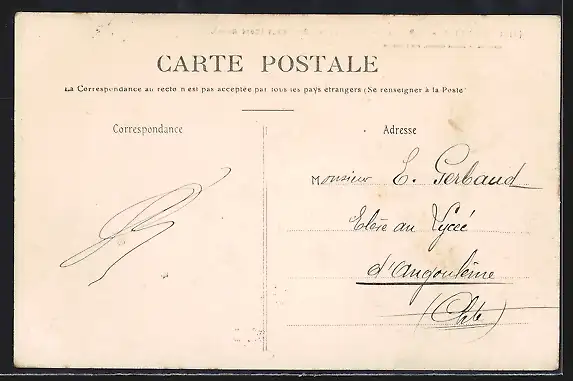 CARTE POSTALE
La Correspondance au recto n'est pas acceptée par tous les pays étrangers (Se renseigner à la Poste
Correspondance
Adresse
Monsieur E. Gerbaud
Elève au Lycée
d'Angoulême
(Chte)